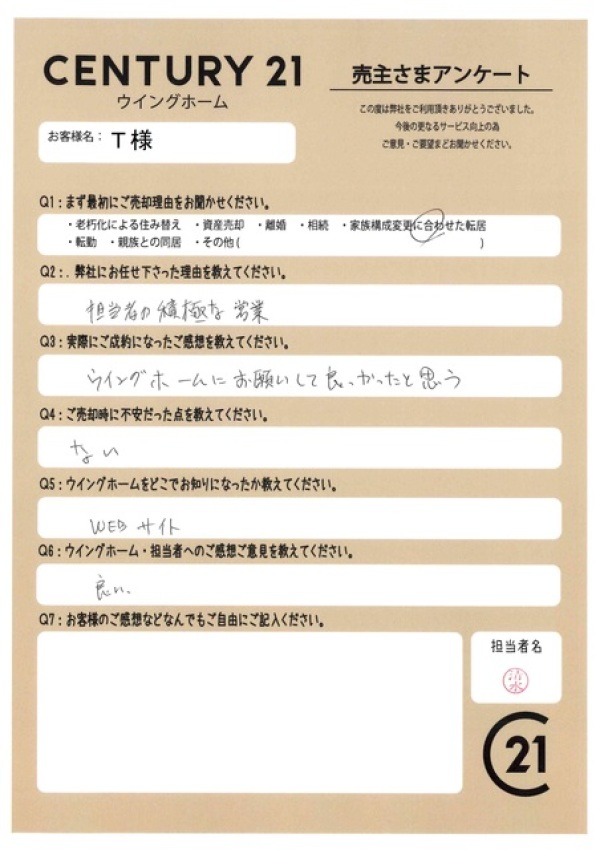 CENTURY 21
ウイングホーム
売主さまアンケート
この度は弊社をご利用頂きありがとうございました。
今後の更なるサービス向上の為
ご意見・ご要望まどお聞かせください。
お客様名： T様
Q1：まず最初にご売却理由をお聞かせください。
・老朽化による住み替え ・資産売却 ・離婚 ・相続 ・家族構成変更に合わせた転居
・転勤 ・親族との同居 ・その他( )
Q2：. 弊社にお任せ下さった理由を教えてください。
担当者の積極な営業
Q3：実際にご成約になったご感想を教えてください。
ウイングホームにお願いして良かったと思う
Q4：ご売却時に不安だった点を教えてください。
ない
Q5：ウイングホームをどこでお知りになったか教えてください。
WEBサイト
Q6：ウイングホーム・担当者へのご感想ご意見を教えてください。
良い、
Q7：お客様のご感想などなんでもご自由にご記入ください。
担当者名
清水
21